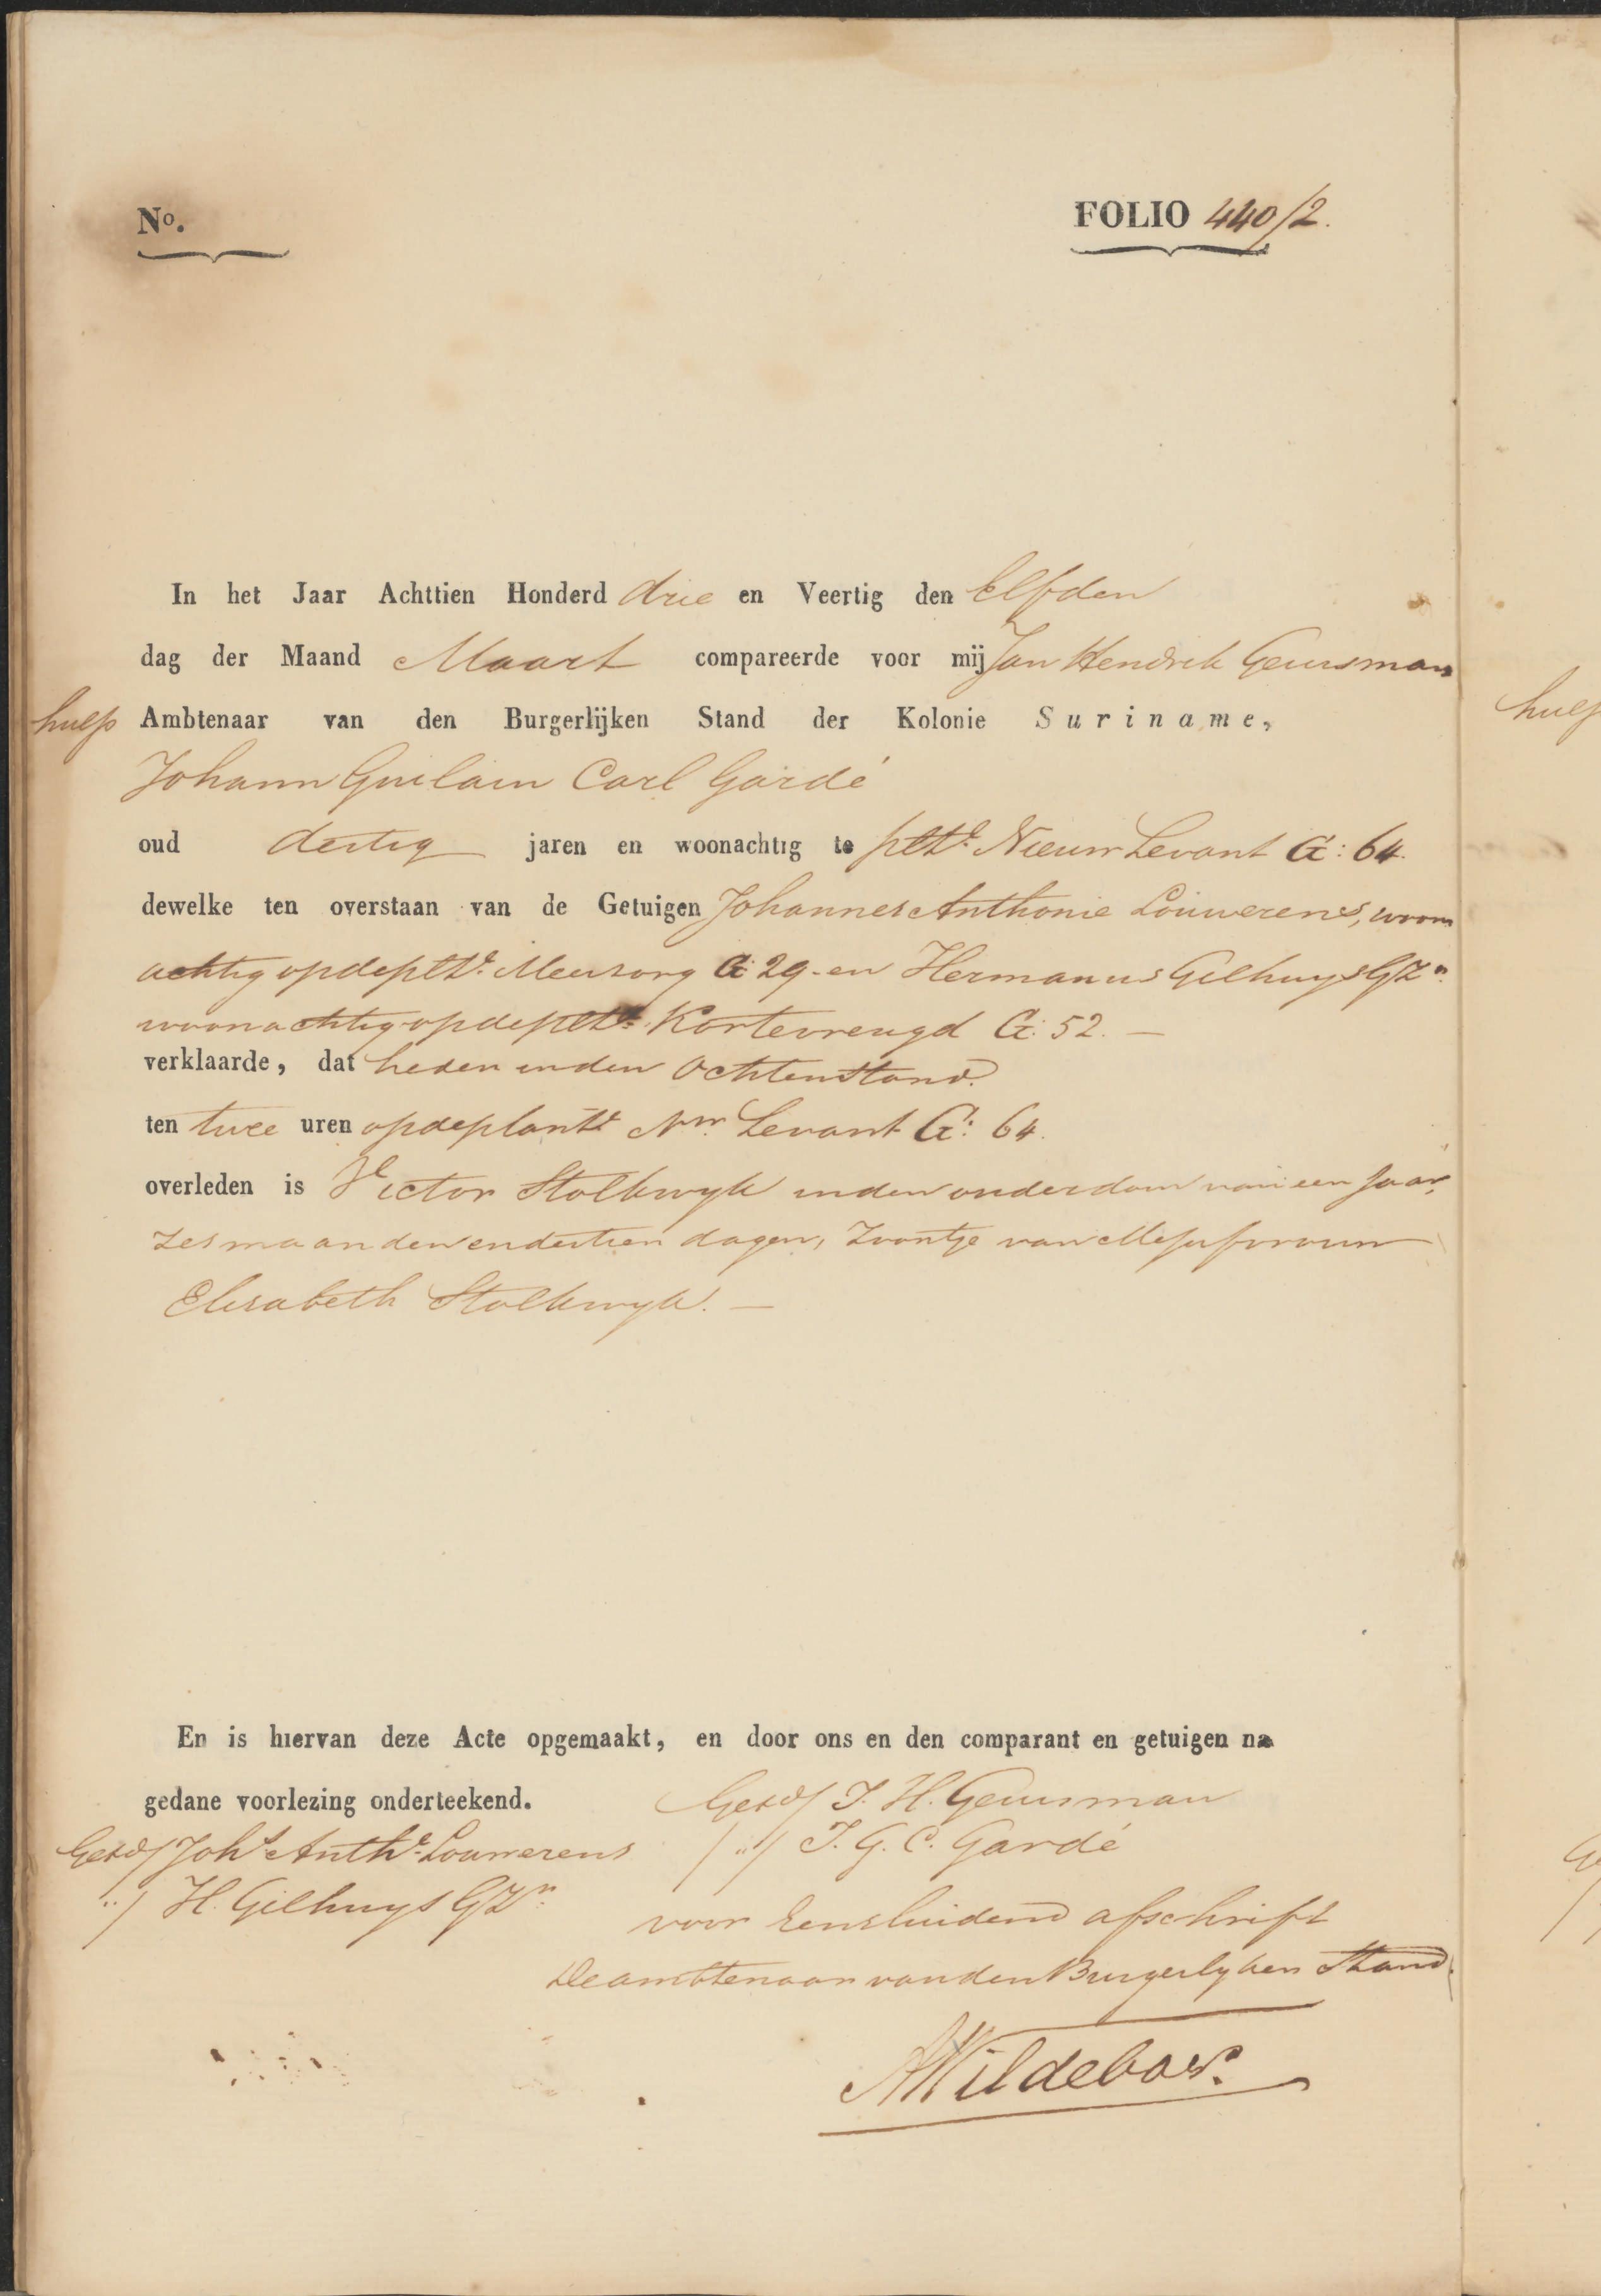 No.
FOLIO 440/2.
In het Jaar Achttien Honderd drie en Veertig den Elfden
dag der Maand Maart compareerde voor mij Jan Hendrik Geursman
hulp Ambtenaar van den Burgerlijken Stand der Kolonie Suriname,
Johann Guilain Carl Gardé
oud dertig jaren en woonachtig te plte Nieuw Levant G: 64.
dewelke ten overstaan van de Getuigen Johannes Anthonie Louwerens, woon
achtig op de plte Meerzorg G: 29 - en Hermanus Gilhuys GZn
woonachtig op de plte Kortevreugd G: 52. —
verklaarde, dat heden in den Ochtenstond
ten twee uren op de plante Nw. Levant G: 64.
overleden is Victor Stolkwyk in den ouderdom van een Jaar,
zes maanden en dertien dagen, Zoontje van Mejufvrouw
Elisabeth Stolkwyk. —
En is hiervan deze Acte opgemaakt, en door ons en den comparant en getuigen na
gedane voorlezing onderteekend.
Getd/ J. H. Geursman
Getd/ Johs Anthe Louwerens
/ "/ J. G. C. Gardé
"/ H. Gilhuys GZn
voor Eensluidend afschrift
De ambtenaar van den Burgerlyken Stand.
AWildeboer.
hulp